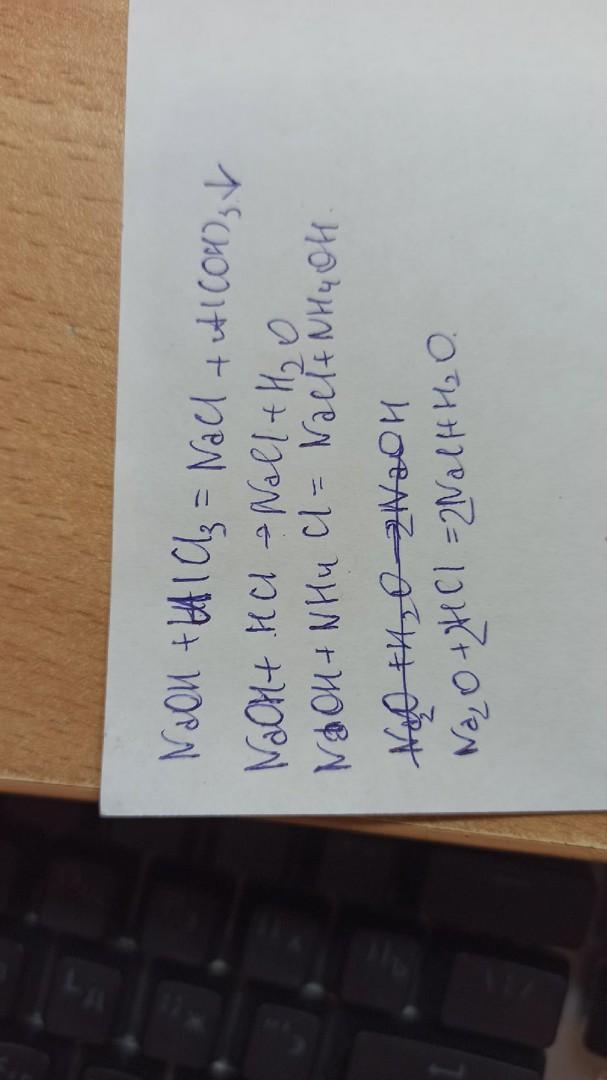 NaOH + AlCl₃ = NaCl + Al(OH)₃↓
NaOH + HCl → NaCl + H₂O
NaOH + NH₄Cl = NaCl + NH₄OH.
Na₂O + H₂O → 2NaOH
Na₂O + 2HCl = 2NaCl + H₂O.